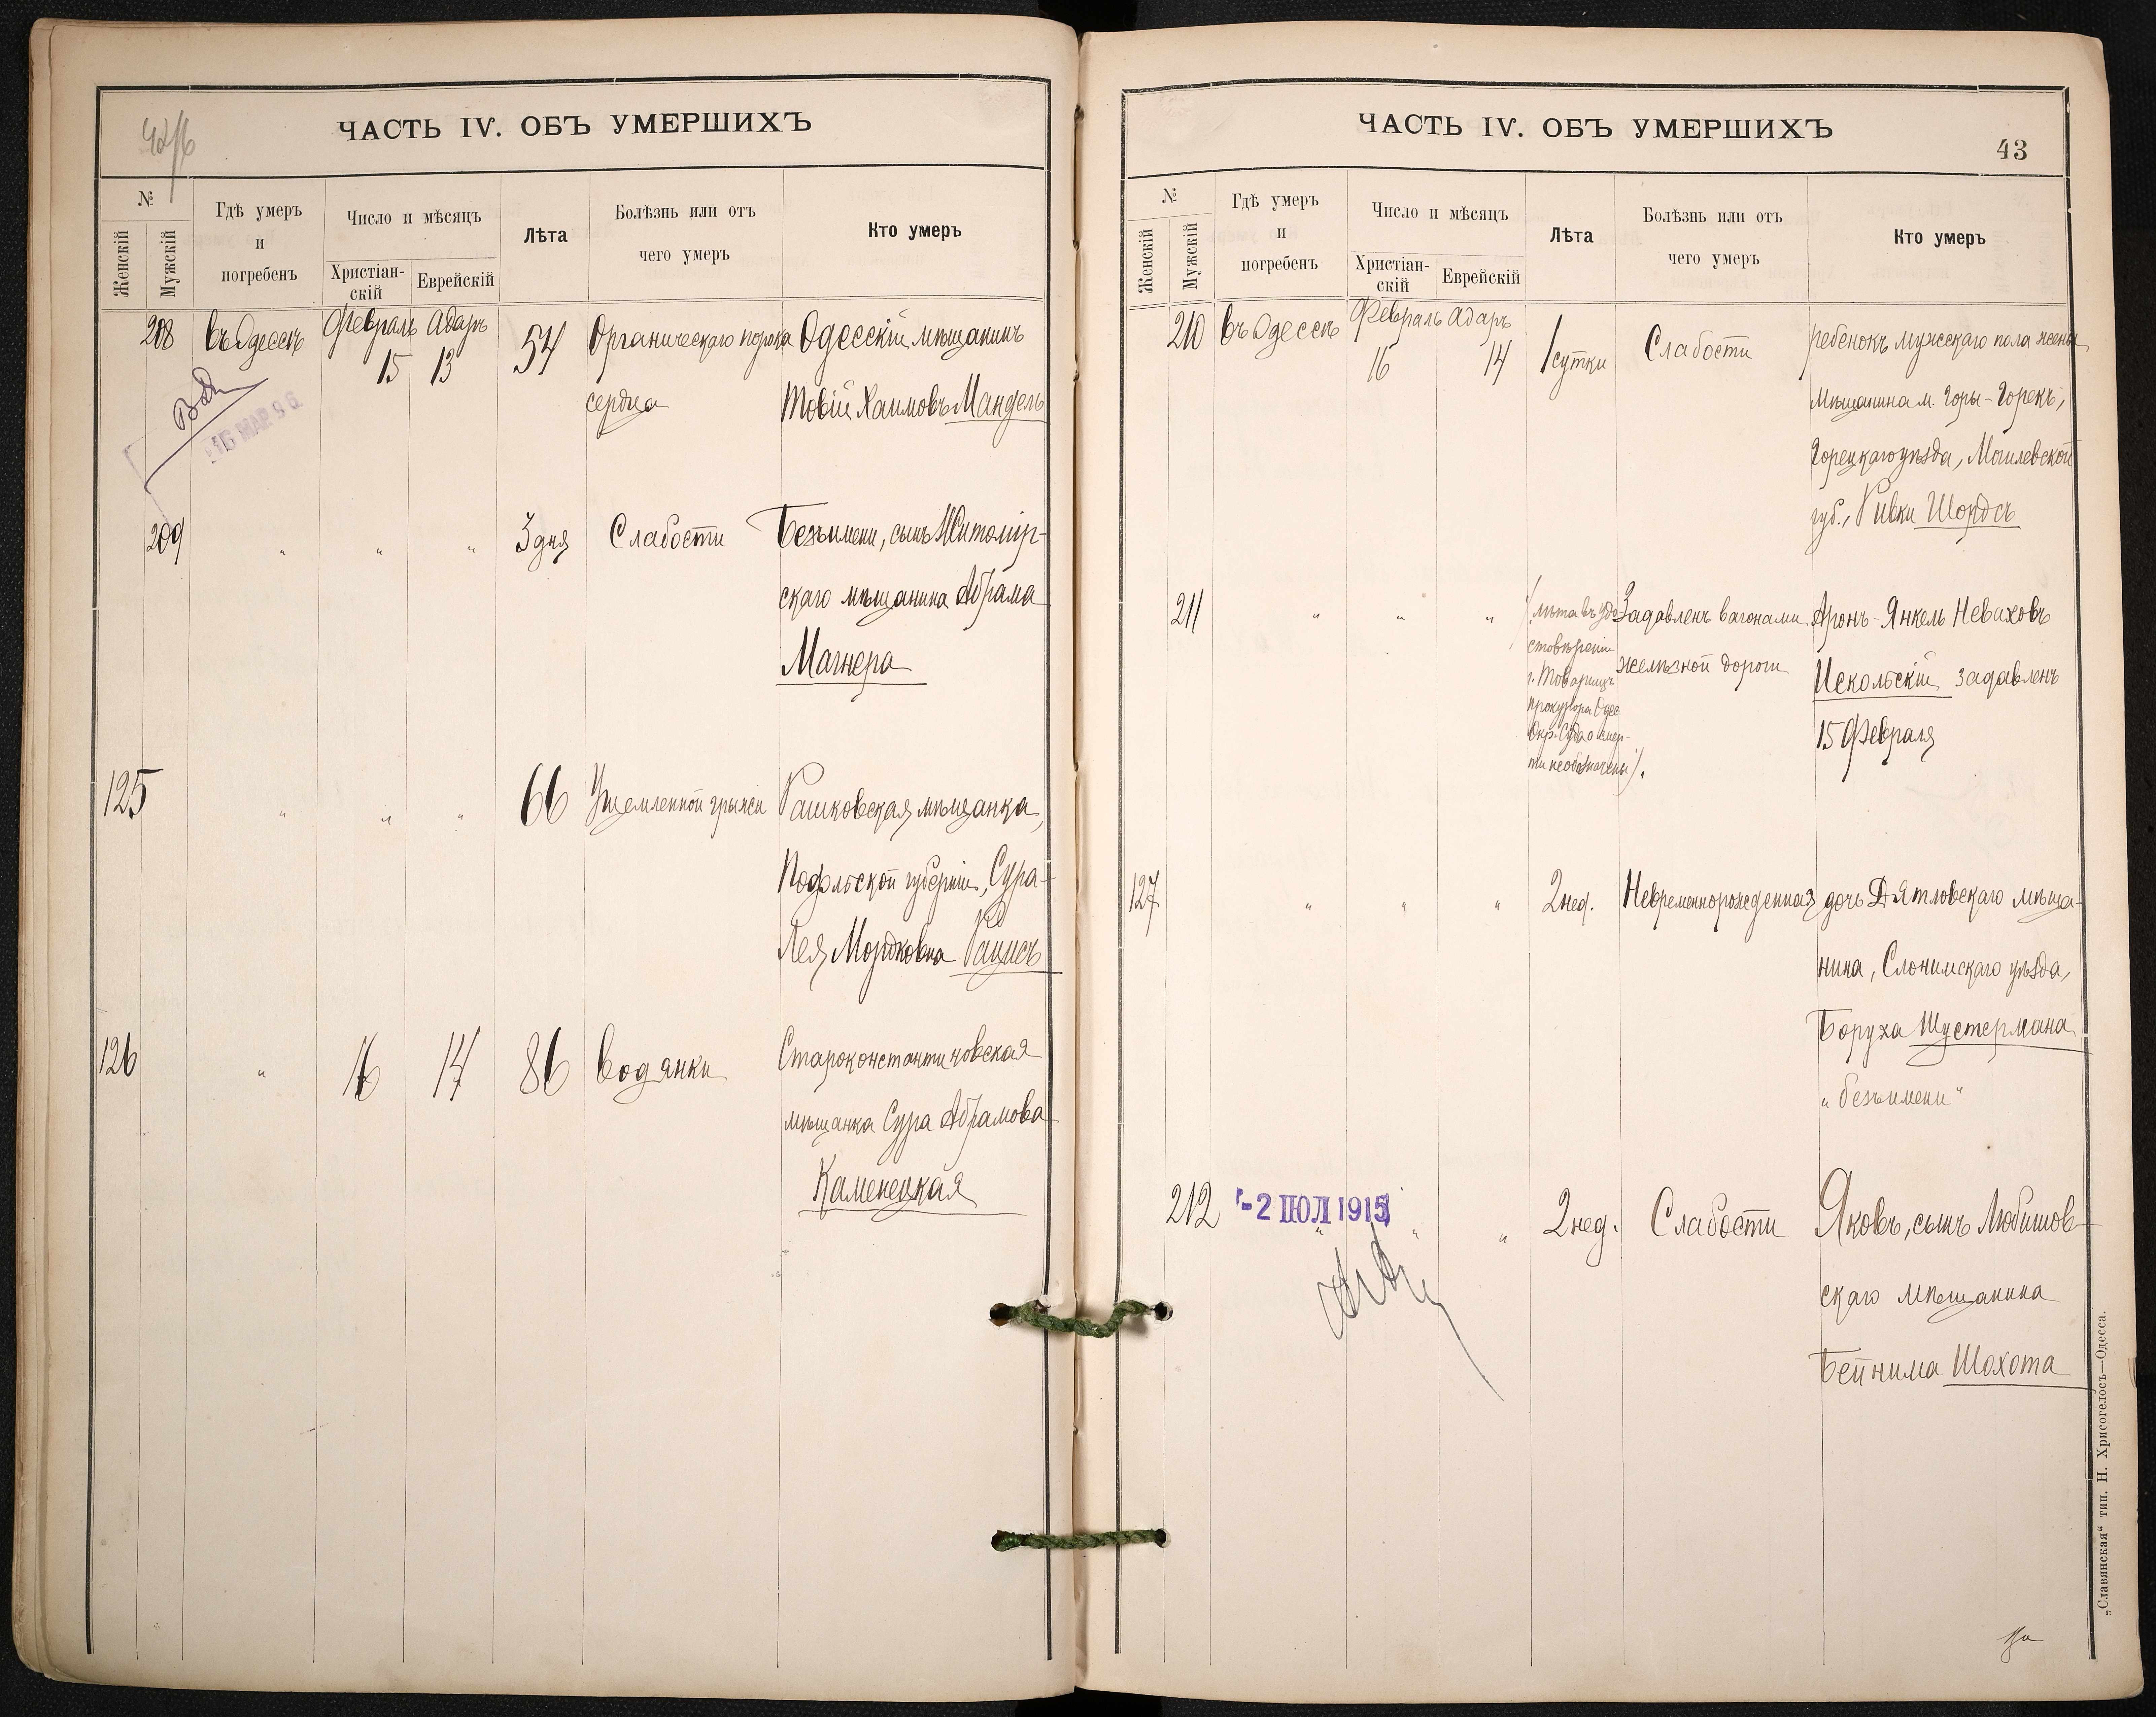 ЧАСТЬ IV. ОБЪ УМЕРШИХЪ
№
Женскій
Мужскій
Гдѣ умеръ
и
погребенъ
Число и мѣсяцъ
Христіан-
скій
Еврейскій
Лѣта
Болѣзнь или отъ
чего умеръ
Кто умеръ
208 въ Одессѣ Февраль Адаръ 54 Органическаго порока Одесскій мѣщанинъ
15 13 сердца Товій Хаимовъ Мандель
16 МАР 96
209 " " " 3 дня Слабости Безъимени, сынъ Житомір-
скаго мѣщанина Абрама
Магнера
125 " " " 66 Ущемленной грыжи Рашковская мѣщанка,
Подольской губерніи, Сура-
Лея Мордковна Рацисъ
126 " 16 14 86 водянки Староконстантиновская
мѣщанка Сура Абрамова
Каменецкая
ЧАСТЬ IV. ОБЪ УМЕРШИХЪ
43
№
Женскій
Мужскій
Гдѣ умеръ
и
погребенъ
Число и мѣсяцъ
Христіан-
скій
Еврейскій
Лѣта
Болѣзнь или отъ
чего умеръ
Кто умеръ
210 въ Одессѣ Февраль Адаръ 1 сутки Слабости ребенокъ мужскаго пола жены
16 14 мѣщанина м. Горы-Горекъ,
Горецкаго уѣзда, Могилевской
губ., Ривки Шордсъ
211 " " " (лѣта въ удо- Задавленъ вагонами Аронъ-Янкель Неваховъ
стовѣреніи желѣзной дороги Искольскій задавленъ
г. Товарищъ
прокурора Одес.
Окр. Суда о смер- 15 Февраля
ти необозначены).
127 " " " 2 нед. Невременнорожденная дочь Дятловскаго мѣща-
нина, Слонимскаго уѣзда,
Боруха Шустермана
"безъимени"
212 -2 ІЮЛ 1915 " " " 2 нед. Слабости Яковъ, сынъ Любишов-
скаго мѣщанина
Бейнима Шохота
„Славянская“ тип. Н. Хрисогелосъ—Одесса.